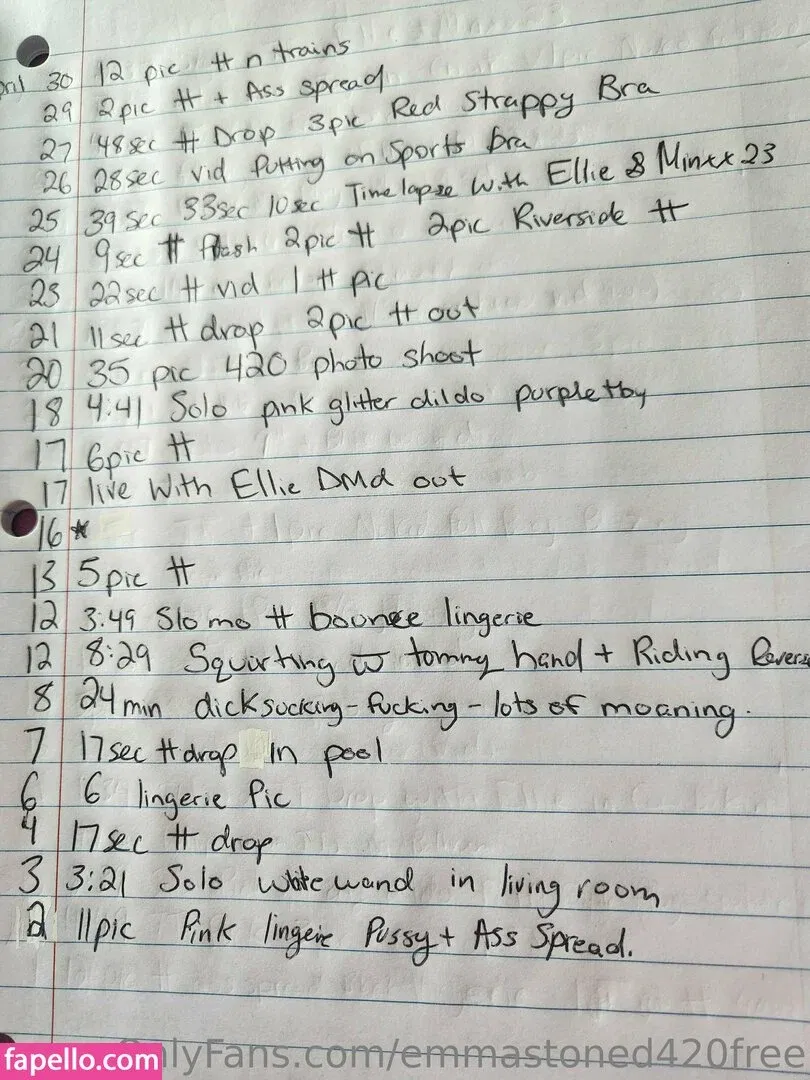 April 30 12 pic tt n trains
29 2pic tt + Ass spread
27 48sec tt Drop 3pic Red Strappy Bra
26 28sec vid Putting on Sports bra
25 39sec 33sec 10sec Timelapse with Ellie & Minxx 23
24 9sec tt flash 2pic tt 2pic Riverside tt
23 22sec tt vid 1 tt pic
21 11sec tt drop 2pic tt out
20 35 pic 420 photo shoot
18 4:41 Solo pink glitter dildo purple toy
17 6pic tt
17 live With Ellie DMd out
16 *
13 5pic tt
12 3:49 Slo mo tt bounce lingerie
12 8:29 Squirting w tommy hand + Riding Revers
8 24min dicksucking - fucking - lots of moaning.
7 17sec tt drop in pool
6 6 lingerie Pic
4 17sec tt drop
3 3:21 Solo white wand in living room
2 11pic Pink lingerie Pussy + Ass Spread.
OnlyFans.com/emmastoned420free
fapello.com